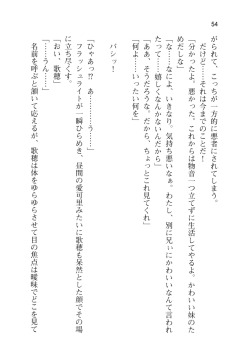 54
がられて、こっちが一方的に悪者にされてしまう。
だけど……それは今までのことだ！
「分かったよ、悪かった、これからは物音一つ立てずに生活してやるよ、かわいい妹のた
めだしな」
「な……なによ、いきなり。気持ち悪いなぁ。わたし、別に兄ぃにかわいいなんて言われ
たって……嬉しくなんかないからね」
「ああ、そうだろうな。だから、ちょっとこれ見てくれ」
「何よ……いったい何を」
バシッ！
「ひゃあっ!? あ…………う……」
フラッシュライトが一瞬ひらめき、昼間の愛可里みたいに歌穂も呆然とした顔でその場
に立ち尽くす。
「おい、歌穂」
「……うん……」
名前を呼ぶと頷いて応えるが、歌穂は体をゆらゆらさせて目の焦点は曖昧でどこを見て